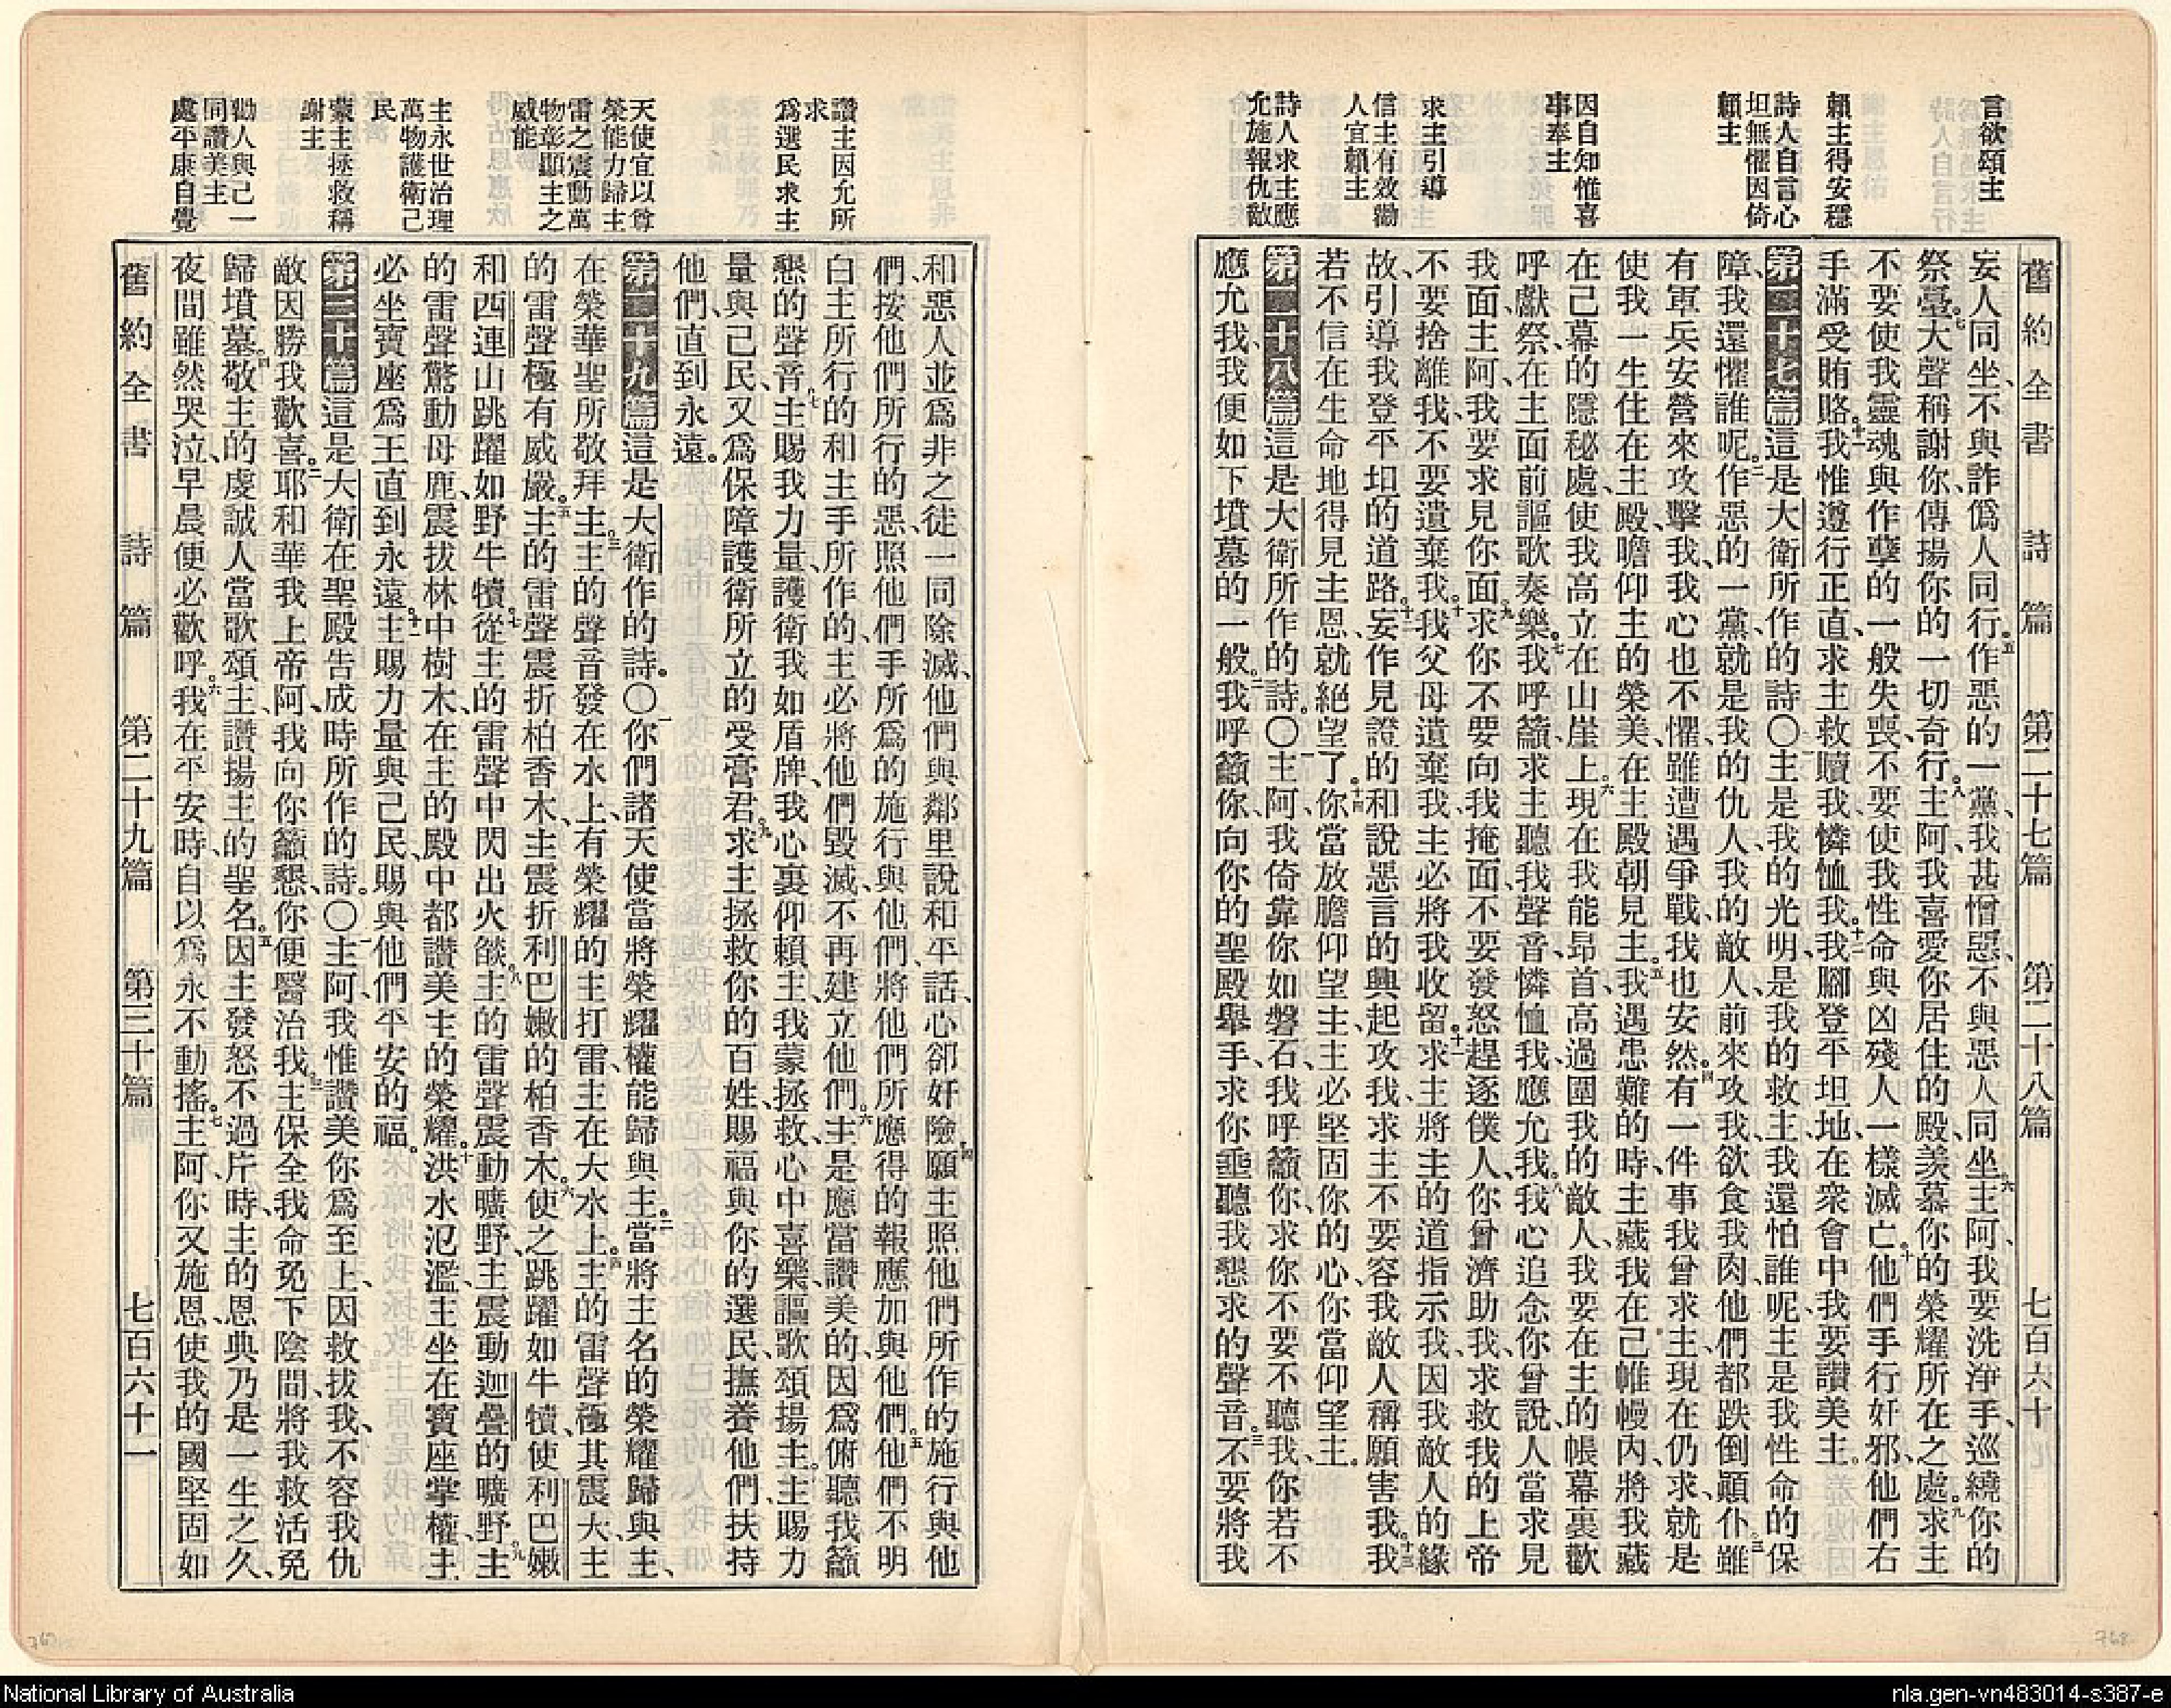 舊約全書 詩篇 第二十七篇 第二十八篇 七百六十
言欲頌主
賴主得安穩
詩人自言心
坦無懼因倚
賴主
因自知惟喜
事奉主
求主引導
信主有效勸
人宜賴主
詩人求主應
允施報仇敵
妄人同坐、不與詐僞人同行。五作惡的一黨、我甚憎惡、不與惡人同坐。六主阿、我要洗淨手、巡繞你的
祭臺。七大聲稱謝你、傳揚你的一切奇行。八主阿、我喜愛你居住的殿、羨慕你的榮耀所在之處。九求主
不要使我靈魂與作孽的一般失喪、不要使我性命與凶殘人一樣滅亡。十他們手行奸邪、他們右
手滿受賄賂。十一我惟遵行正直、求主救贖我、憐恤我。十二我腳登平坦地、在衆會中我要讚美主。
第二十七篇 這是大衛所作的詩。〇一主是我的光明、是我的救主、我還怕誰呢、主是我性命的保
障、我還懼誰呢。二作惡的一黨、就是我的仇人、我的敵人、前來攻我、欲食我肉、他們都跌倒顚仆。三雖
有軍兵安營來攻擊我、我心也不懼、雖遭遇爭戰、我也安然。四有一件事我曾求主、現在仍求、就是
使我一生住在主殿、瞻仰主的榮美、在主殿朝見主。五我遇患難的時、主藏我在己帷幔內、將我藏
在己幕的隱秘處、使我高立在山崖上。六現在我能昂首、高過圍我的敵人、我要在主的帳幕裏歡
呼獻祭、在主面前謳歌奏樂。七我呼籲求主聽我聲音、憐恤我、應允我。八我心追念你曾說、人當求見
我面、主阿、我要求見你面。九求你不要向我掩面、不要發怒趕逐僕人、你曾濟助我、求救我的上帝
不要捨離我、不要遺棄我。十我父母遺棄我、主必將我收留。十一求主將主的道指示我、因我敵人的緣
故、引導我登平坦的道路。十二妄作見證的和說惡言的興起攻我、求主不要容我敵人稱願害我。十三我
若不信在生命地得見主恩、就絕望了。十四你當放膽仰望主、主必堅固你的心、你當仰望主。
第二十八篇 這是大衛所作的詩。〇一主阿、我倚靠你如磐石、我呼籲你、求你不要不聽我、你若不
應允我、我便如下墳墓的一般。二我呼籲你、向你的聖殿舉手、求你垂聽我懇求的聲音。三不要將我
讚主因允所
求
爲選民求主
天使宜以尊
榮能力歸主
雷之震動萬
物彰顯主之
威能
主永世治理
萬物護衛己
民
蒙主拯救稱
謝主
勸人與己一
同讚美主
處平康自覺
和惡人並爲非之徒一同除滅、他們與鄰里說和平話、心卻奸險。四願主照他們所作的施行與他
們、按他們所行的惡、照他們手所爲的施行與他們、將他們所應得的報應加與他們。五他們不明
白主所行的和主手所作的、主必將他們毀滅、不再建立他們。六主是應當讚美的、因爲俯聽我籲
懇的聲音。七主賜我力量、護衛我如盾牌、我心裏仰賴主、我蒙拯救、心中喜樂、謳歌頌揚主。八主賜力
量與己民、又爲保障護衛所立的受膏君。九求主拯救你的百姓、賜福與你的選民、撫養他們、扶持
他們、直到永遠。
第二十九篇 這是大衛作的詩。〇一你們諸天使當將榮耀權能歸與主。二當將主名的榮耀歸與主、
在榮華聖所敬拜主。三主的聲音發在水上、有榮耀的主打雷、主在大水上。四主的雷聲極其震大、主
的雷聲極有威嚴。五主的雷聲震折柏香木、主震折利巴嫩的柏香木。六使之跳躍如牛犢、使利巴嫩
和西連山跳躍如野牛犢。七從主的雷聲中閃出火燄。八主的雷聲震動曠野、主震動迦疊的曠野。九主
的雷聲驚動母鹿、震拔林中樹木、在主的殿中都讚美主的榮耀。十洪水氾濫、主坐在寶座掌權、主
必坐寶座爲王、直到永遠。十一主賜力量與己民、賜與他們平安的福。
第三十篇 這是大衛在聖殿告成時所作的詩。〇一主阿、我惟讚美你爲至上、因救拔我、不容我仇
敵因勝我歡喜。二耶和華我上帝阿、我向你籲懇、你便醫治我。三主保全我命免下陰間、將我救活免
歸墳墓。四敬主的虔誠人當歌頌主、讚揚主的聖名。五因主發怒不過片時、主的恩典乃是一生之久、
夜間雖然哭泣、早晨便必歡呼。六我在平安時、自以爲永不動搖。七主阿、你又施恩、使我的國堅固如
舊約全書 詩篇 第二十九篇 第三十篇 七百六十一
768
National Library of Australia
nla.gen-vn483014-s387-e